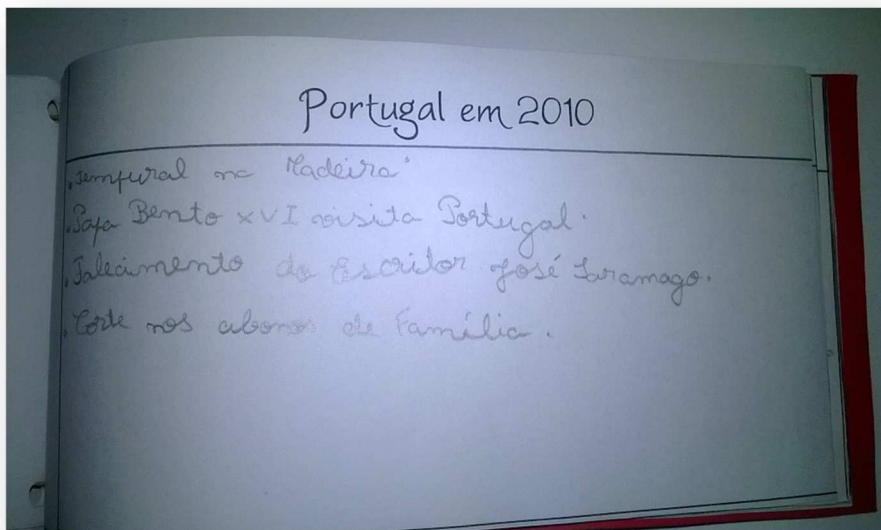 Portugal em 2010
.Tempural na Madeira.
.Papa Bento XVI visita Portugal.
.Falecimento do Escritor José Saramago.
.Corte nos abonos de Família.